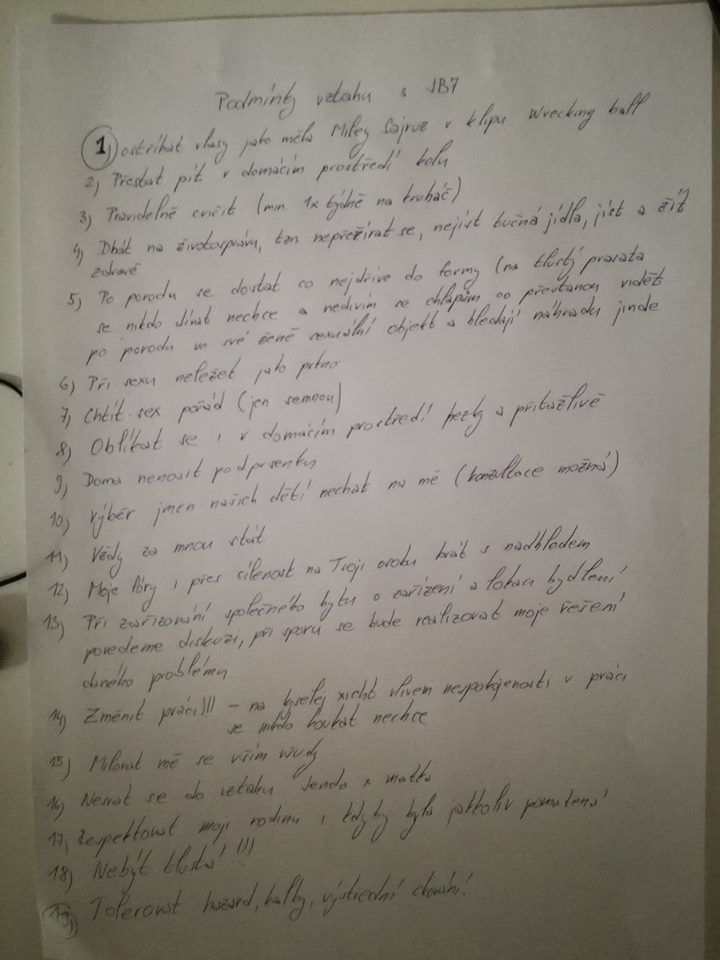 Podmínky vztahu s JB7
1) ostříhat vlasy jako měla Miley Sajrus v klipu Wrecking ball
2) Přestat pít v domácím prostředí kolu
3) Pravidelně cvičit (min. 1x týdně na kruháč)
4) Dbát na životosprávu, tzn nepřežírat se, nejíst tučná jídla, jíst a žít
zdravě
5) Po porodu se dostat co nejdříve do formy (na tlustý prasata
se nikdo dívat nechce a nedivím se chlapům co přestanou vidět
po porodu ve své ženě sexuální objekt a hledají náhradu jinde
6) Při sexu neležet jako prkno
7) Chtít sex pořád (jen semnou)
8) Oblíkat se i v domácím prostředí hezky a přitažlivě
9) Doma nenosit podprsenku
10) Výběr jmen našich dětí nechat na mě (konzultace možná)
11) Vždy za mnou stát
12) Moje fóry i přes cílenost na Tvoji osobu brát s nadhledem
13) Při zařizování společného bytu o zařízení a lokaci bydlení
povedeme diskuzi, při sporu se bude realizovat moje řešení
daného problému
14) Změnit práci!!! - na kyselej xicht vlivem nespokojenosti v práci
se nikdo koukat nechce
15) Milovat mě se vším všudy
16) Nesrat se do vztahu Jenda x matka
17) Respektovat moji rodinu i kdyby byla jakkoliv pomatená
18) Nebýt tlustá!!!
19) Tolerovat hazard, kalby, výstřední chování!